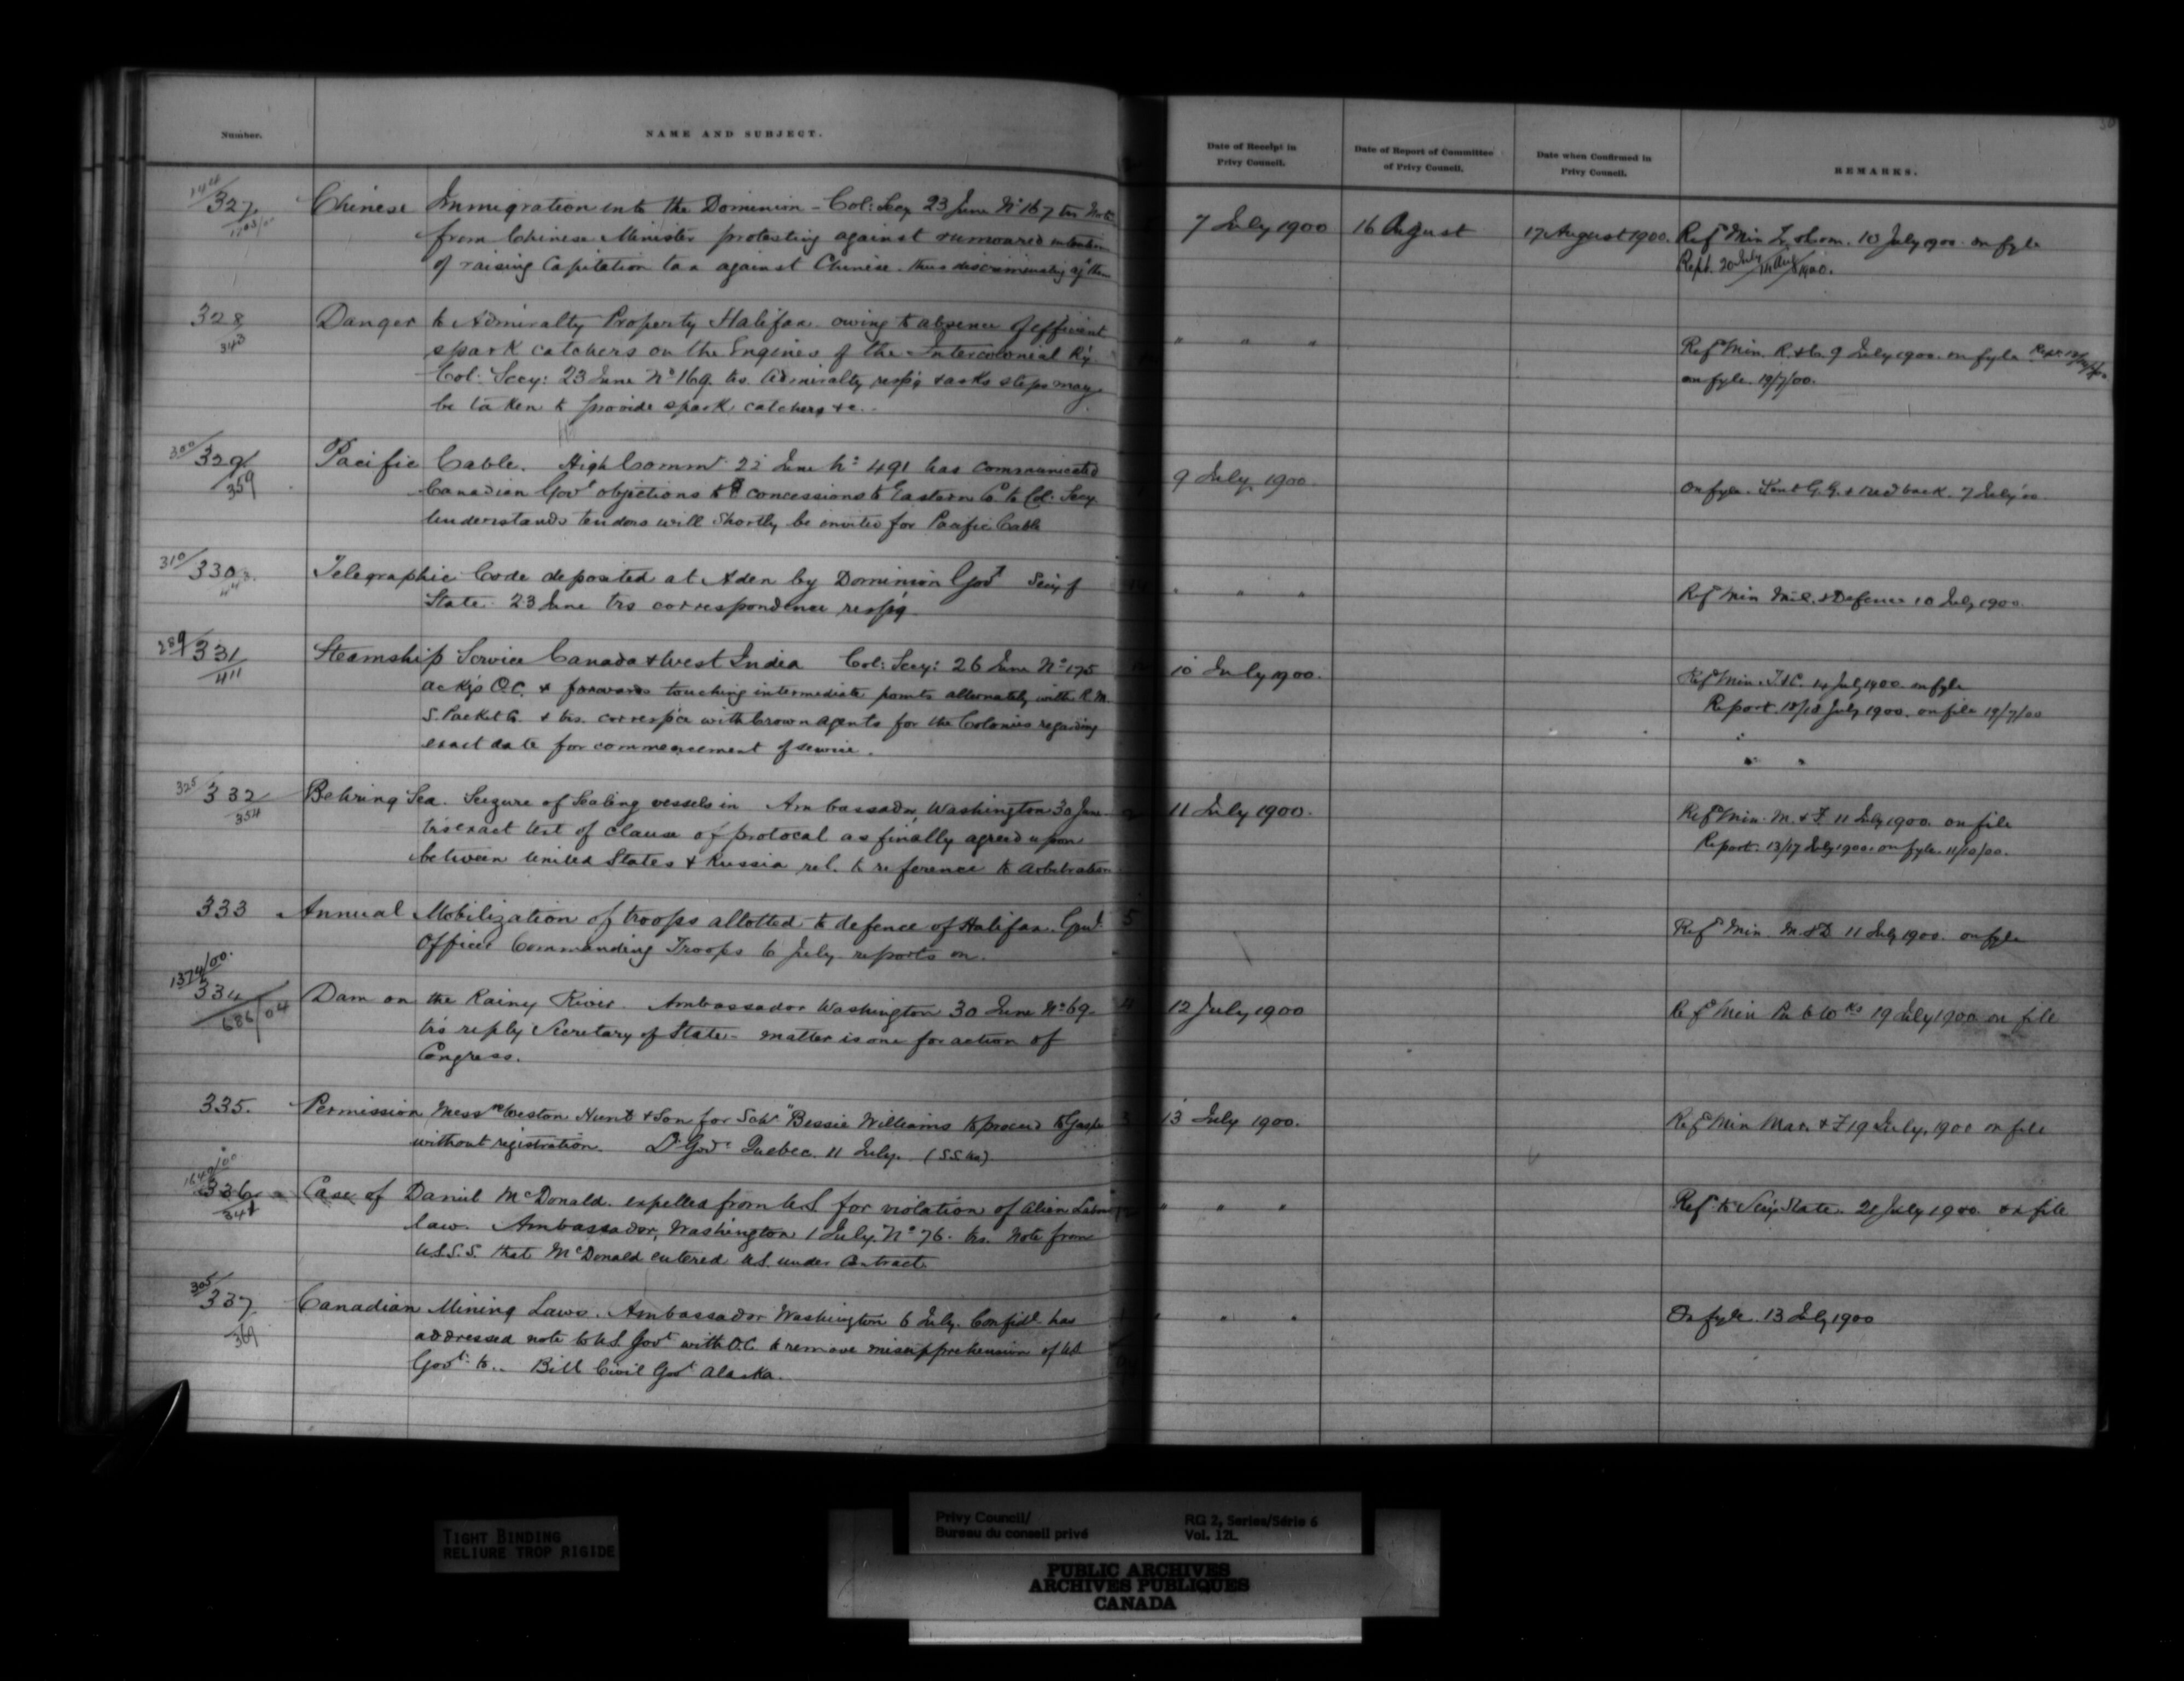 Number.
NAME AND SUBJECT.
Date of Receipt in
Privy Council.
Date of Report of Committee
of Privy Council.
Date when Confirmed in
Privy Council.
REMARKS.
327
Chinese Immigration into the Dominion - Col: Secy 23 June No 167 trs Note
from Chinese Minister protesting against rumoured intention
of raising Capitation tax against Chinese. thus discriminating agst them
7 July 1900
16 August
17 August 1900.
Refd Min T. & Com. 10 July 1900. on fyle
Rept. 20 July 1900.
328
343
Danger to Admiralty Property Halifax. owing to absence of efficient
spark catchers on the Engines of the Intercolonial Ry.
Col: Secy: 23 June No 169. trs. Admiralty resp'g & asks steps may
be taken to provide spark catchers &c.
" " "
Refd Min. R. & Ca. 9 July 1900. on fyle
on fyle. 19/7/00.
300/329
359
Pacific Cable. High Commr 22 June No 491 has communicated
Canadian Govt objections to concessions to Eastern Co to Col: Secy.
Understands tenders will shortly be invited for Pacific Cable
9 July 1900.
On fyle. Sent G.G. & recd back. 7 July 00.
310/330
Telegraphic Code deposited at Aden by Dominion Govt Secy of
State 23 June trs correspondence resp'g.
" " "
Refd Min Mil. & Defence 10 July 1900.
289/331
411
Steamship Service Canada & West India Col: Secy: 26 June No 175
ackg's O.C. & forwards touching intermediate points alternately with R.M.
S. Packet Co. & trs. corresp'ce with Crown Agents for the Colonies regarding
exact date for commencement of service.
10 July 1900.
Refd Min. T & C. 14 July 1900. on fyle
Report 18/18 July 1900. on file 19/7/00
325 332
354
Behring Sea. Seizure of Sealing vessels in Ambassador, Washington 30 June
trs exact text of clause of protocal as finally agreed upon
between United States & Russia rel. to reference to arbitration
11 July 1900.
Refd Min. M. & F. 11 July 1900. on file
Report. 13/17 July 1900. on fyle. 11/10/00.
333
Annual Mobilization of troops allotted to defence of Halifax. Genl.
Officer Commanding Troops 6 July. reports on.
5
Refd Min. M. & D 11 July 1900. on fyle
1374/00.
334
686/04
Dam on the Rainy River. Ambassador Washington 30 June No 69.
trs reply Secretary of State - matter is one for action of
Congress.
4
12 July 1900
Refd Min Pub Wks 19 July 1900 on file
335.
Permission Messrs Weston Hunt & Son for Schr "Bessie Williams to proceed to Gaspe
without registration. Lt Govr Quebec. 11 July. (S.S. )
3
13 July 1900.
Refd Min Mar. & F 19 July, 1900 on file
336
341
Case of Daniel McDonald. expelled from U.S for violation of Alien Labour
law. Ambassador, Washington 1 July. No 76. trs. Note from
U.S.S.S. that McDonald entered U.S. under Contract
" " "
Refd to Secy State. 21 July 1900. on file
305/337
369
Canadian Mining Laws. Ambassador Washington 6 July. Confidl. has
addressed note to U.S. Govt with O.C. to remove misapprehension of U.S
Govt: to.. Bill Civil Govt Alaska.
" " "
On fyle. 13 July 1900
TIGHT BINDING
RELIURE TROP RIGIDE
Privy Council/
Bureau du conseil privé
RG 2, Series/Série 6
Vol. 12L
PUBLIC ARCHIVES
ARCHIVES PUBLIQUES
CANADA